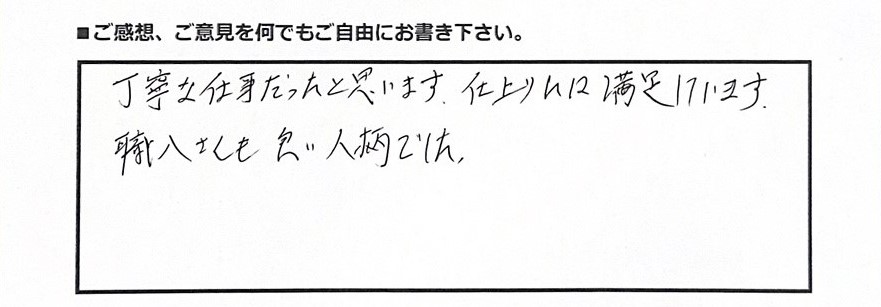 ■ご感想、ご意見を何でもご自由にお書き下さい。
丁寧な仕事だったと思います。仕上りには満足しています。
職人さんも良い人柄でした。